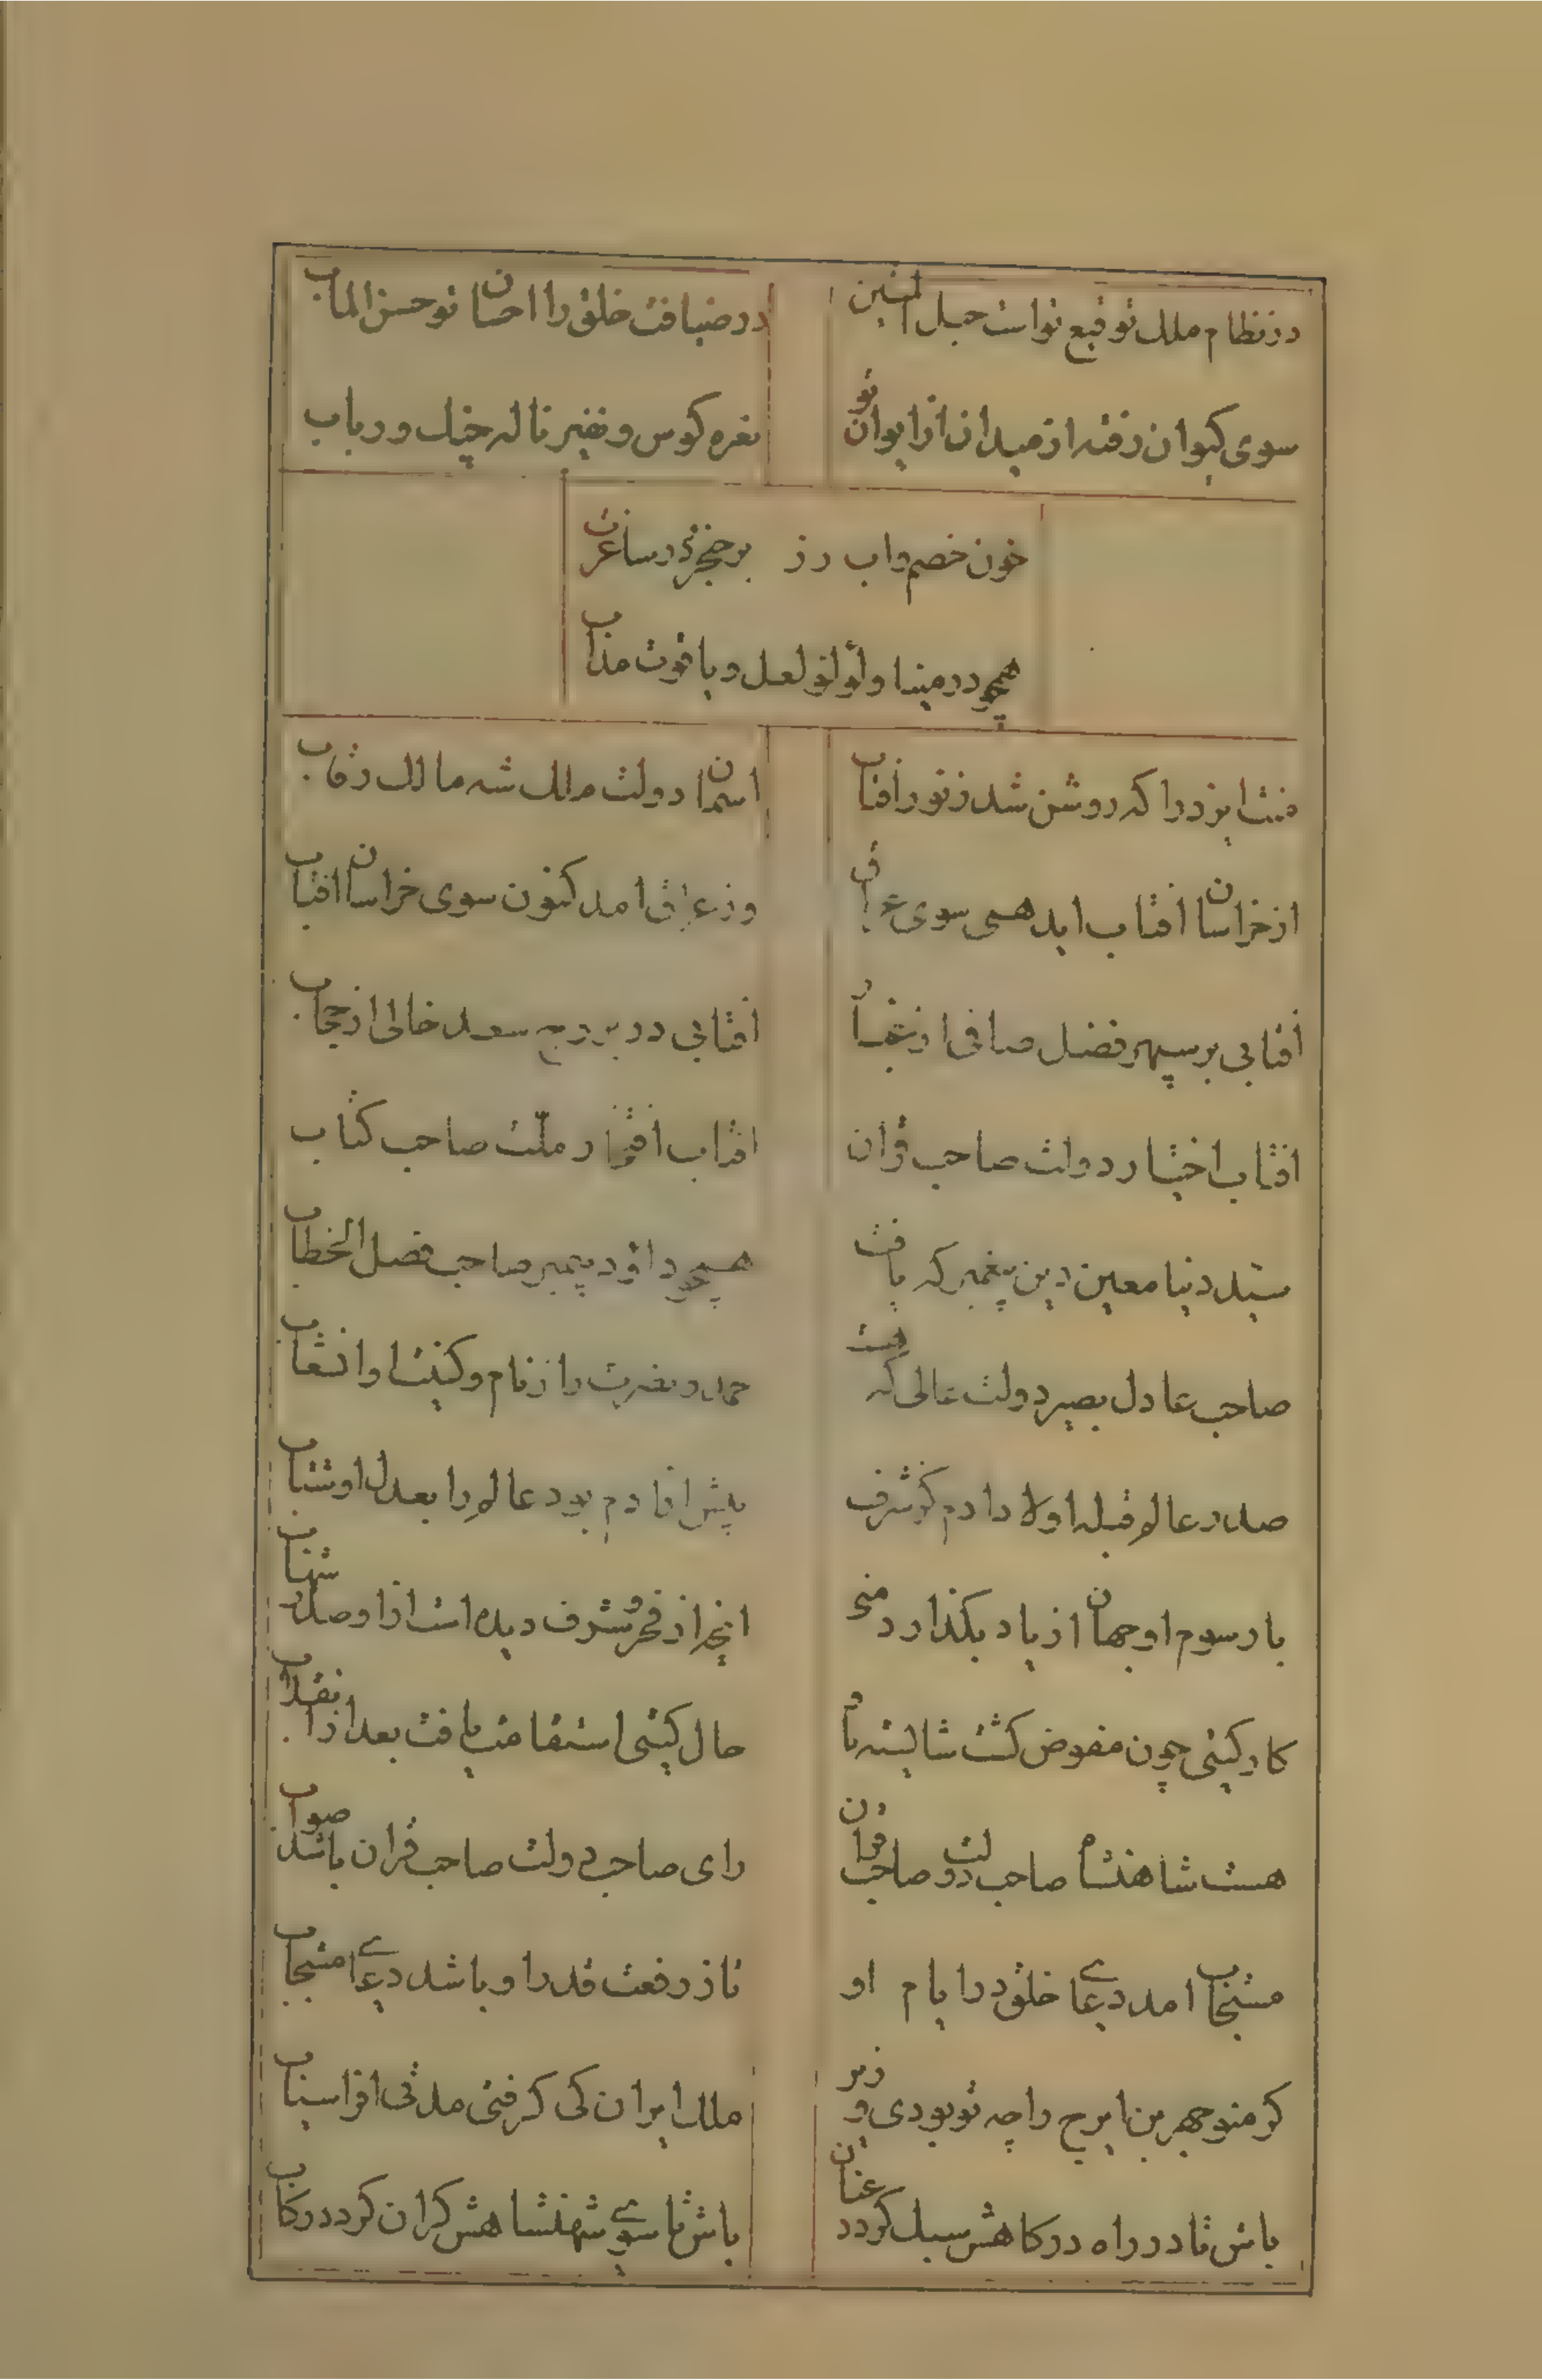 در نظام ملک توقیع تو است حبل المتین
در ضیافت خلق را احسان تو حسن الماب
سوی کیوان رفته از میدان از ایوان تو
نعره کوس و نفیر ناله چنک و رباب
خون خصم و اب رز بر خنجرت در ساغرت
همچو در مینا و لولو لعل و یاقوت مذاب
منت ایزد را که روشن شد ز نور افتاب
اسمان دولت ملک شه مالک رقاب
از خراسان افتاب اید همی سوی عراق
وز عراق امد کنون سوی خراسان افتاب
افتابی بر سپهر فضل صافی از
افتابی در بروج سعد خالی از حجاب
افتاب اختیار دولت صاحب قران
افتاب افتخار ملت صاحب کتاب
سید دنیا معین دین پیغمبر که یافت
همچو داود پیمبر صاحب فصل الخطاب
صاحب عادل بصیر دولت عالی که هست
حمد و نصرت را ز نام و کنیت او انتساب
صدر عالم قبله اولاد ادم کز شرف
پیش از ادم بود عالم را بعدل او شتاب
با رسوم او جهان از یاد بکذارد همی
انچه از فخر و شرف دیده است از او صدر شهاب
کار کیتی چون مفوض کشت شایسته
حال کیتی استقامت یافت بعد از انقلاب
هست شاهنشاه صاحب دولت و صاحب قران
رای صاحب دولت صاحب قران باشد صواب
مستجاب امد دعای خلق در ایام او
تا ز رفعت قدر او باشد دعای مستجاب
کر منوچهر بن ایرج را چه تو بودی وزیر
ملک ایران کی کرفتی مدتی افراسیاب
باش تا در راه درکاهش سبک کردد عنان
باش تا سوی شهنشاهش کران کردد رکاب